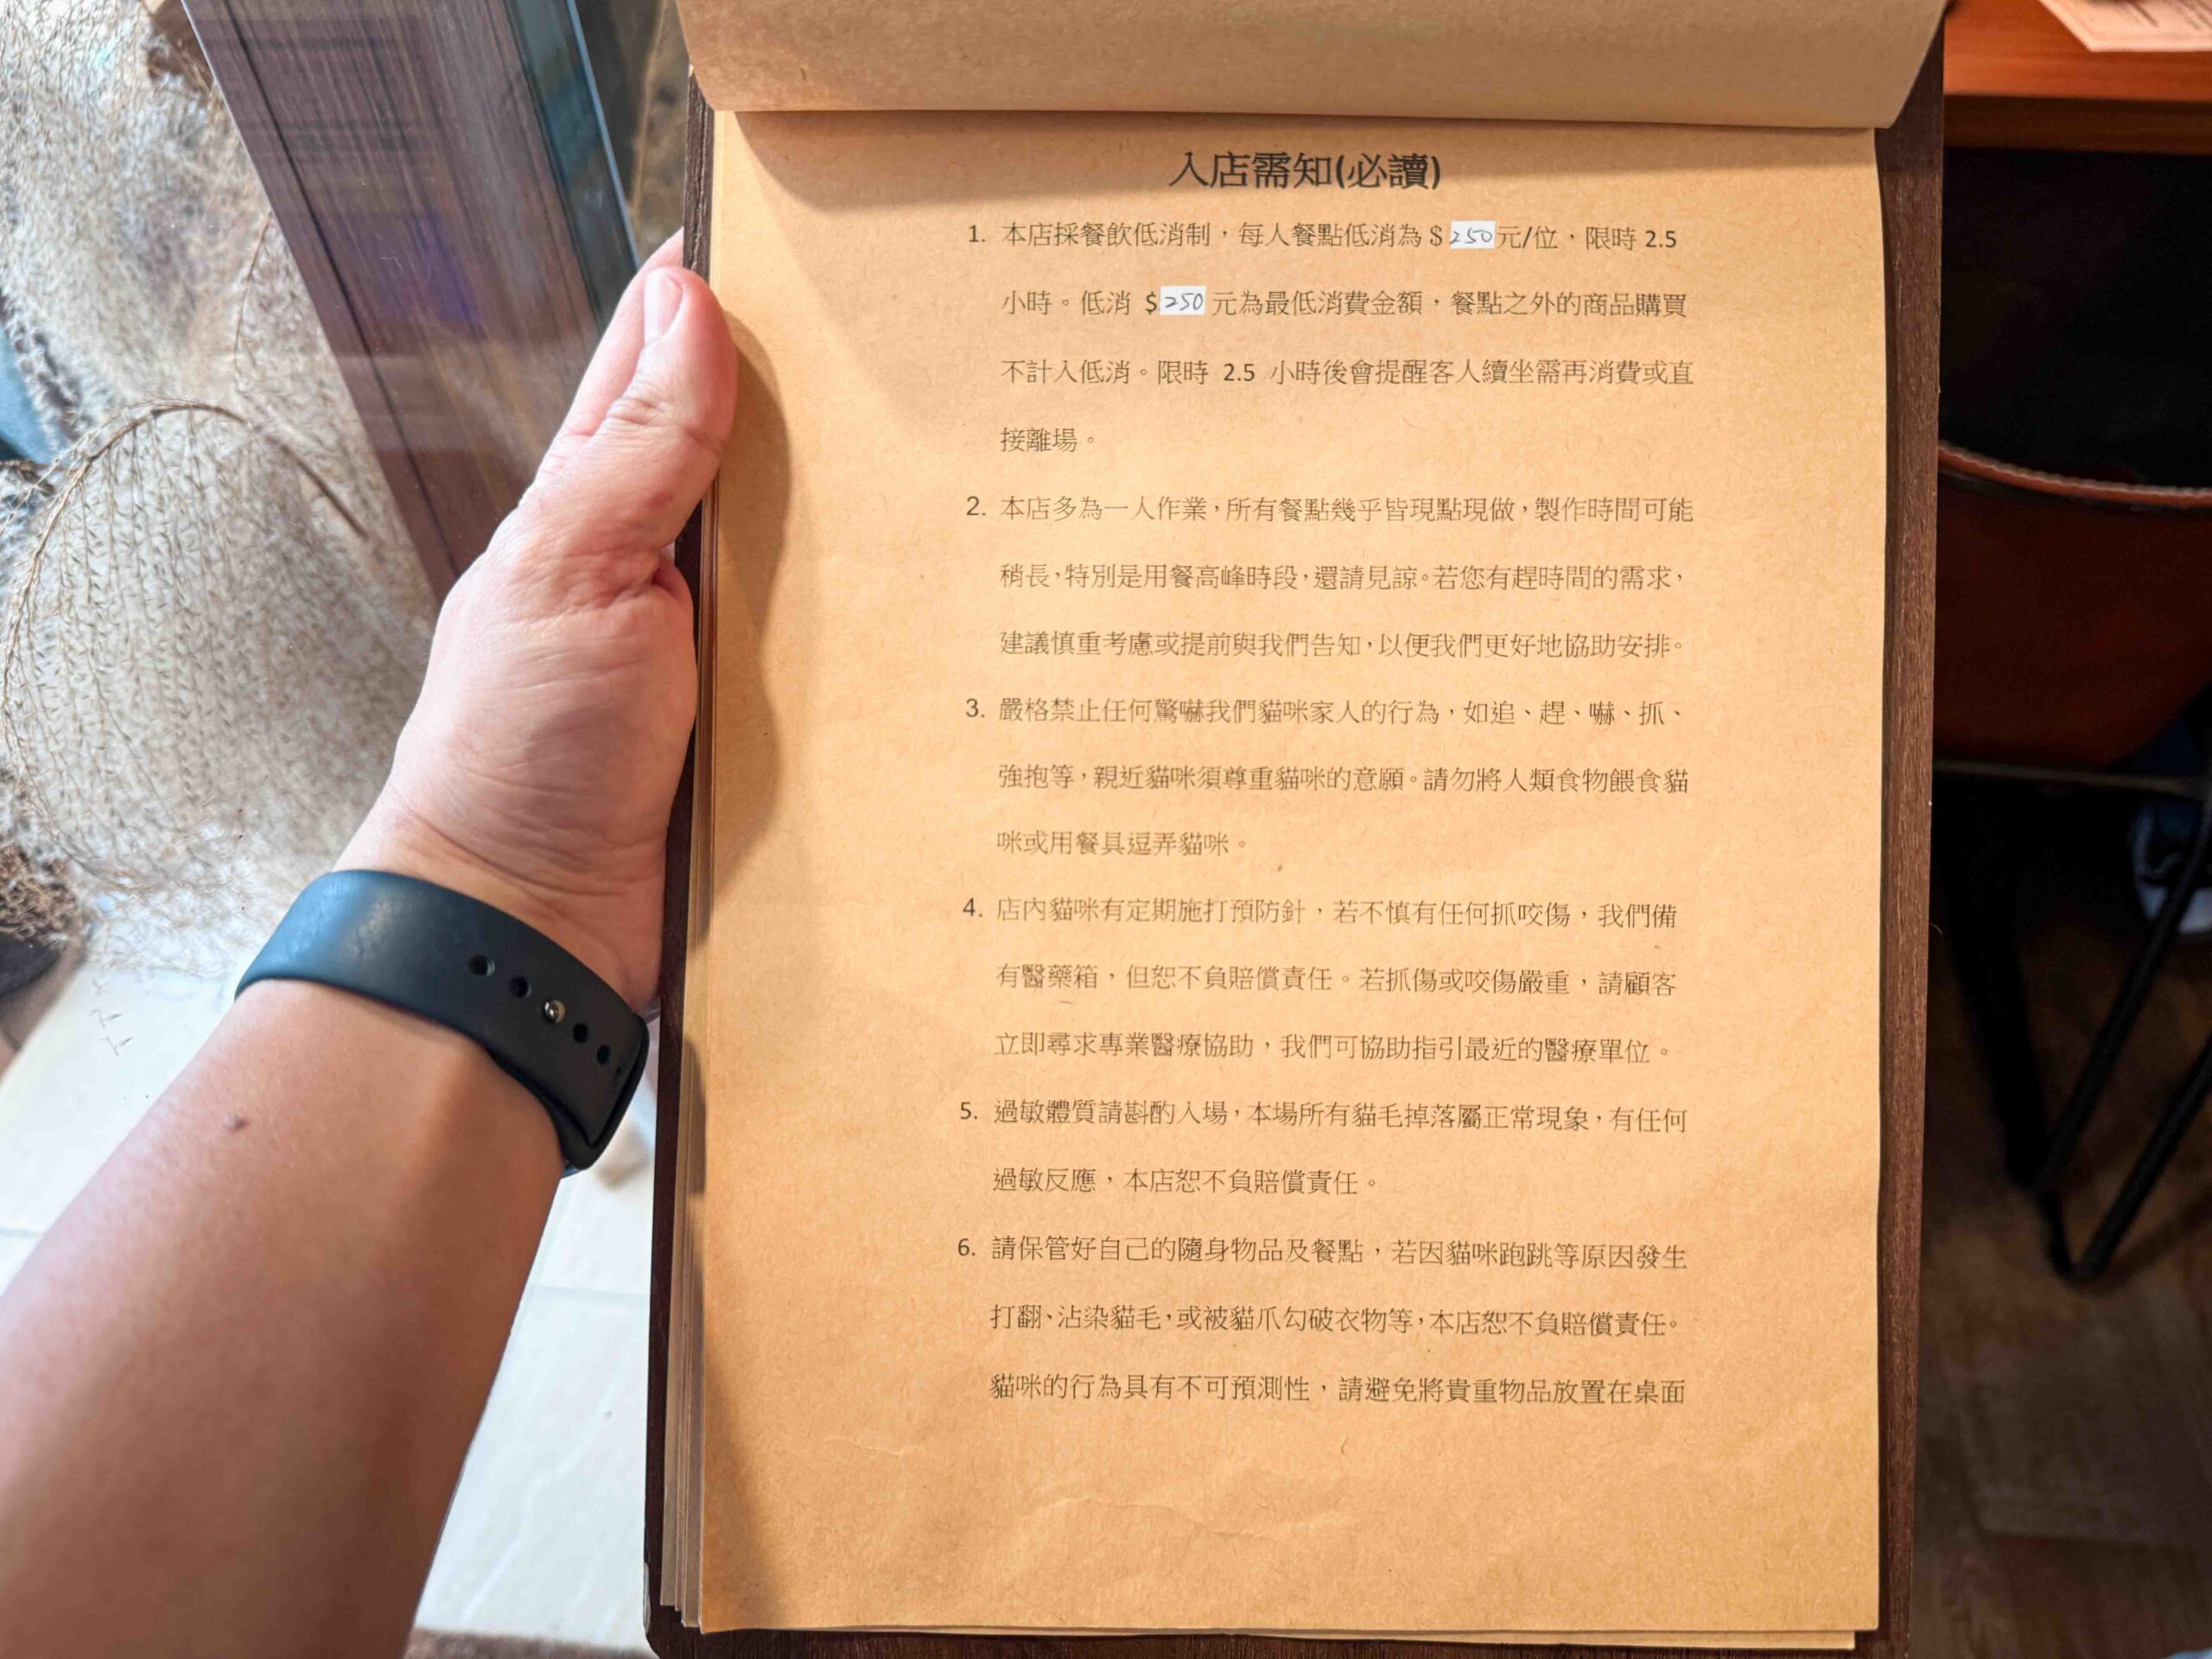 入店需知(必讀)
1. 本店採餐飲低消制，每人餐點低消為 $ 250 元/位，限時 2.5
小時。低消 $ 250 元為最低消費金額，餐點之外的商品購買
不計入低消。限時 2.5 小時後會提醒客人續坐需再消費或直
接離場。
2. 本店多為一人作業，所有餐點幾乎皆現點現做，製作時間可能
稍長，特別是用餐高峰時段，還請見諒。若您有趕時間的需求，
建議慎重考慮或提前與我們告知，以便我們更好地協助安排。
3. 嚴格禁止任何驚嚇我們貓咪家人的行為，如追、趕、嚇、抓、
強抱等，親近貓咪須尊重貓咪的意願。請勿將人類食物餵食貓
咪或用餐具逗弄貓咪。
4. 店內貓咪有定期施打預防針，若不慎有任何抓咬傷，我們備
有醫藥箱，但恕不負賠償責任。若抓傷或咬傷嚴重，請顧客
立即尋求專業醫療協助，我們可協助指引最近的醫療單位。
5. 過敏體質請斟酌入場，本場所有貓毛掉落屬正常現象，有任何
過敏反應，本店恕不負賠償責任。
6. 請保管好自己的隨身物品及餐點，若因貓咪跑跳等原因發生
打翻、沾染貓毛，或被貓爪勾破衣物等，本店恕不負賠償責任。
貓咪的行為具有不可預測性，請避免將貴重物品放置在桌面